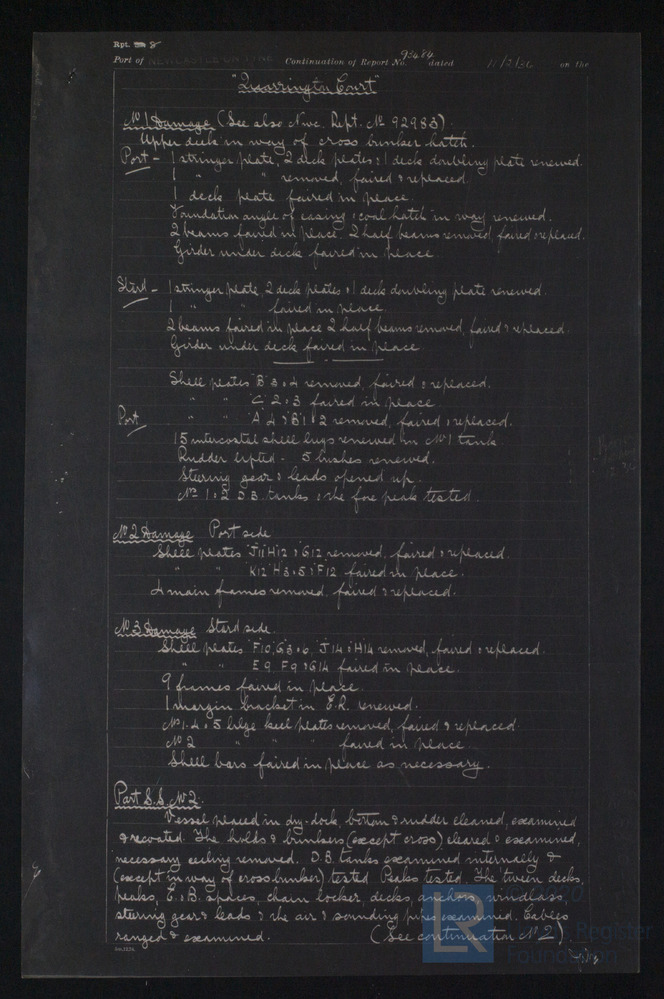 Rpt. 8
Port of NEWCASTLE ON TYNE Continuation of Report No. 93484 dated 11/2/36 on the
"Quarrington Court"
No 1 Damage (See also Nwc. Rept. No 92983)
Upper deck in way of cross bunker hatch.
Port - 1 stringer plate, 2 deck plates & 1 deck doubling plate renewed.
1 " " removed, faired & replaced.
1 deck plate faired in place
Foundation angle of casing & coal hatch in way renewed.
2 beams faired in place. 2 half beams removed, faired & replaced.
Girder under deck faired in place
Stard - 1 stringer plate, 2 deck plates & 1 deck doubling plate renewed.
1 " " faired in place.
2 beams faired in place 2 half beams removed, faired & replaced.
Girder under deck faired in place
Shell plates B 3 & 4 removed, faired & replaced.
" " C 2 & 3 faired in place
Port " " A 4 & B 1 & 2 removed, faired & replaced.
15 intercostal shell lugs renewed in No 1 tank
Rudder lifted - 5 bushes renewed.
Steering gear & leads opened up.
Nos 1 & 2 D.B. tanks & the fore peak tested.
No 2 Damage Port side
Shell plates J11 H12 & G12 removed, faired & replaced.
" " K12 H3 & 5 & F12 faired in place.
4 main frames removed, faired & replaced.
No 3 Damage Stard side
Shell plates F10, G3 & 6, J14 & H14 removed, faired & replaced.
" " E9, F9 & G14 faired in place.
9 frames faired in place.
1 margin bracket in E.R. renewed.
Nos 1. 4 & 5 bilge keel plates removed, faired & replaced
No 2 " " " faired in place
Shell bars faired in place as necessary.
Part S.S. No 2.
Vessel placed in dry-dock, bottom & rudder cleaned, examined
& recoated. The holds & bunkers (except cross) cleared & examined,
necessary ceiling removed. D.B. tanks examined internally &
(except in way of cross bunker) tested. Peaks tested. The tween decks,
peaks, E. & B. spaces, chain locker, decks, anchors, windlass
steering gear & leads & the air & sounding pipes examined. Cables
ranged & examined. (See continuation No 2)
LR
© 2020
Lloyd's Register
Foundation